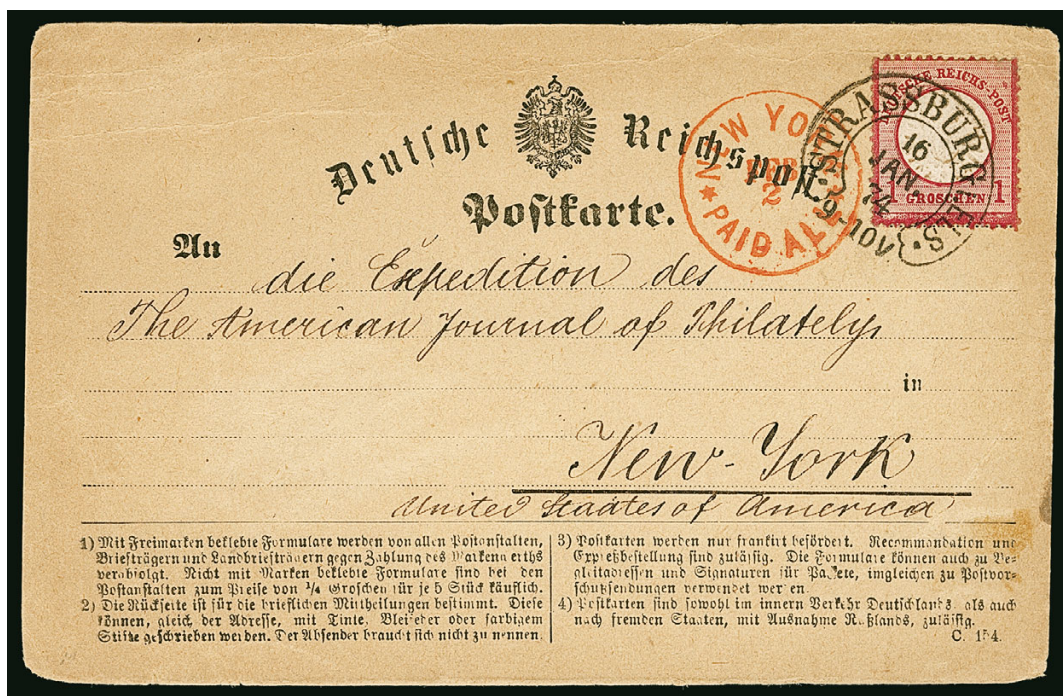 Deutsche Reichspost
Postkarte.
DEUTSCHE REICHS-POST
1 GROSCHEN 1
STRASSBURG I. ELS.
16
JAN.
74
9-10V
NEW YORK
FEB
2
PAID ALL
An
die Expedition des
The American Journal of Philately,
in
New-York
United Staates of America
1) Mit Freimarken beklebte Formulare werden von allen Postanstalten,
Briefträgern und Landbriefträgern gegen Zahlung des Markenwerths
verabfolgt. Nicht mit Marken beklebte Formulare sind bei den
Postanstalten zum Preise von ¼ Groschen für je 5 Stück käuflich.
2) Die Rückseite ist für die brieflichen Mittheilungen bestimmt. Diese
können, gleich der Adresse, mit Tinte, Bleifeder oder farbigem
Stifte geschrieben werden. Der Absender braucht sich nicht zu nennen.
3) Postkarten werden nur frankirt befördert. Recommandation und
Expreßbestellung sind zulässig. Die Formulare können auch zu Be-
gleitadressen und Signaturen für Packete, imgleichen zu Postvor-
schußsendungen verwendet werden.
4) Postkarten sind sowohl im innern Verkehr Deutschlands, als auch
nach fremden Staaten, mit Ausnahme Rußlands, zulässig.
C. 154.